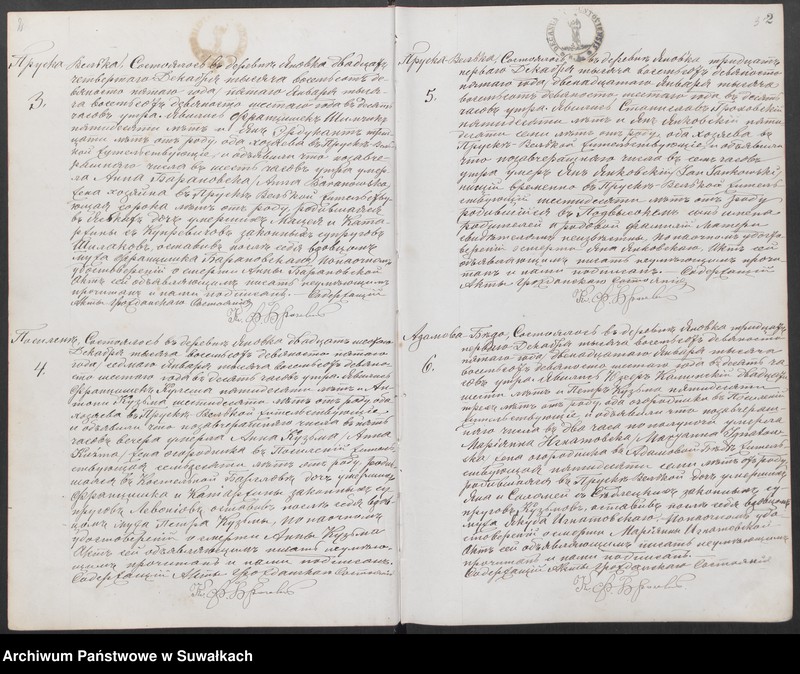 2
Пруска Велька, Состоялось въ деревнѣ Яновка двадцать
3.
четвертаго Декабря тысяча восемьсотъ де-
вяносто пятаго года, пятаго Января тыся-
ча восемьсотъ девяносто шестаго года въ десять
часовъ утра. Явились Францишекъ
пятидесяти лѣтъ и Янъ три
цати лѣтъ отъ роду оба хозяева въ Прускѣ Вель
кой жительствующіе, и объявили что позавче-
рашняго числа въ шесть часовъ утра умер-
ла Анна Барановска /Anna Baranowska/
жена хозяина въ Прускѣ Велькой жительству-
ющая сорока лѣтъ отъ роду родившаяся
въ дочь умершихъ и Кате-
рины съ законныхъ супруговъ
оставивъ послѣ себя вдовцомъ
мужа Францишка Барановскаго. По настоящемъ
удостовѣреніи о смерти Анны Барановской
Актъ сей объявляющимъ писать неумѣющимъ
прочитанъ и нами подписанъ. — Содержащій
Акты Гражданскаго Состоянія
4.
Состоялось въ деревнѣ Яновка двадцать шестаго
Декабря тысяча восемьсотъ девяносто пятаго
года / седмаго Января тысяча восемьсотъ девяно-
сто шестаго года въ десять часовъ утра. Явились
Францишекъ пятидесяти лѣтъ и Ан-
тони Кузьма шестидесяти лѣтъ отъ роду оба
хозяева въ Прускѣ Велькой жительствующіе
и объявили что позавчерашняго числа въ пять
часовъ вечера умерла Анна Кузьма /Anna
Kuźma/ жена огородника въ жител-
ствующая семидесяти лѣтъ отъ роду роди-
вшаяся въ дочь умершихъ
Францишка и Катаржины законныхъ су-
пруговъ оставивъ послѣ себя вдов-
цомъ мужа Петра Кузьмы, По настоящемъ
удостовѣреніи о смерти Анны Кузьма
Актъ сей объявляющимъ писать неумѣю-
щимъ прочитанъ и нами подписанъ.
Содержащій Акты Гражданскаго Состоянія
2
Пруска Велька, Состоялось въ деревнѣ Яновка тридцать
5.
перваго Декабря тысяча восемьсотъ девяносто
пятаго года, двенадцатаго Января тысяча
восемьсотъ девяносто шестаго года въ десять
часовъ утра. Явились Станиславъ
пятидесяти лѣтъ и Янъ Янковскій пяти
десяти семи лѣтъ отъ роду оба хозяева въ
Прускѣ Велькой жительствующіе, и объявили
что позавчерашняго числа въ семь часовъ
утра умеръ Янъ Янковскій /Jan Jankowski/
нищій временно въ Прускѣ Велькой житель
ствующій шестидесяти лѣтъ отъ роду
родившійся въ сынъ имена
родителей и родовой фамиліи матери
свидѣтелямъ неизвѣстны. По настоящемъ удосто-
вѣреніи о смерти Яна Янковскаго. Актъ сей
объявляющимъ писать неумѣющимъ прочи-
танъ и нами подписанъ. — Содержащій
Акты Гражданскаго Состоянія
Состоялось въ деревнѣ Яновка тридцать
6.
перваго Декабря тысяча восемьсотъ девяносто
пятаго года, двенадцатаго Января тысяча
восемьсотъ девяносто шестаго года въ десять ча-
совъ утра. Явились двадцати
шести лѣтъ и Петръ Кузьма пятидесяти
трехъ лѣтъ отъ роду, оба огородники въ
жительствующіе, и объявили что позавчераш-
няго числа въ два часа по полуночи умерла
Маріянна Игнатовска /Maryanna Ignatow-
ska/ жена огородника въ житель-
ствующая пятидесяти семи лѣтъ отъ роду
родившаяся въ Прускѣ Велькой дочь умершихъ
Яна и Саломеи съ законныхъ су-
пруговъ Кузьмовъ, оставивъ послѣ себя вдовцомъ
мужа Якуба Игнатовскаго. По настоящемъ удо-
стовѣреніи о смерти Маріянны Игнатовской
Актъ сей объявляющимъ писать неумѣющимъ
прочитанъ и нами подписанъ.
Содержащій Акты Гражданскаго Состоянія
Archiwum Państwowe w Suwałkach